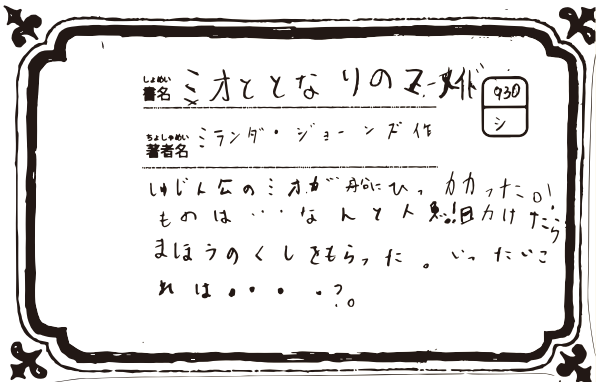 しょめい
書名 ミオととなりのマーメイド
930
シ
ちょしゃめい
著者名 ミランダ・ジョーンズ作
しゅじん公のミオが船にひっかかった。!
ものは…なんと人魚!!日かけたら
まほうのくしをもらった。いったいこ
れは・・・・?。